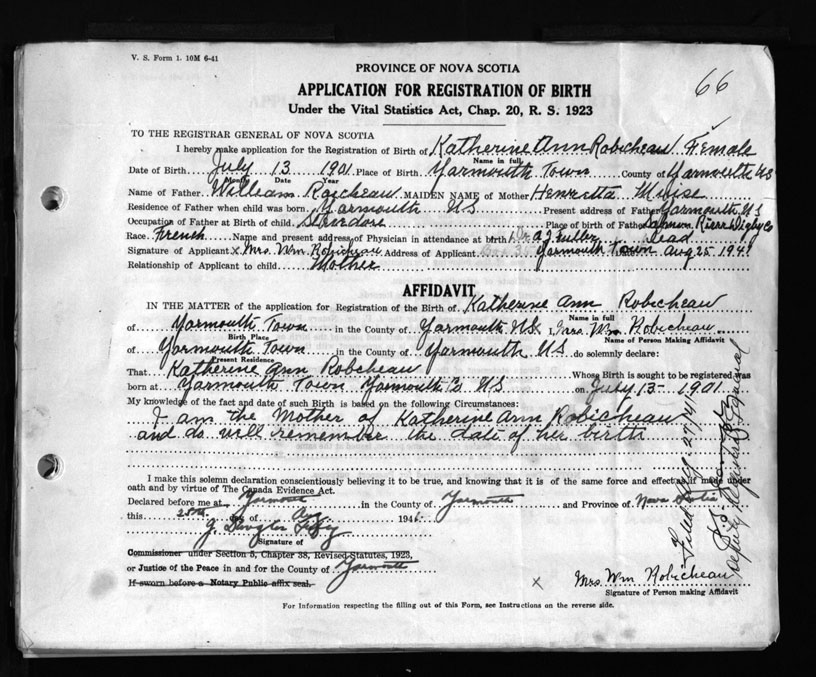 V. S. Form 1. 10M 6-41
66
PROVINCE OF NOVA SCOTIA
APPLICATION FOR REGISTRATION OF BIRTH
Under the Vital Statistics Act, Chap. 20, R. S. 1923
TO THE REGISTRAR GENERAL OF NOVA SCOTIA
I hereby make application for the Registration of Birth of Katherine Ann Robicheau Female
Name in full
Date of Birth July 13 1901 Place of Birth Yarmouth Town County of Yarmouth NS
Month Date Year
Name of Father William Roicheau MAIDEN NAME of Mother Henrietta Muise
Residence of Father when child was born Yarmouth NS Present address of Father Yarmouth NS
Occupation of Father at Birth of child Stevedore Place of birth of Father Salmon River Digby Co
Race French Name and present address of Physician in attendance at birth Dr. A J Fuller Dead
Signature of Applicant x Mrs. Wm Robicheau Address of Applicant Yarmouth Town Aug 25 194
Relationship of Applicant to child Mother
AFFIDAVIT
IN THE MATTER of the application for Registration of the Birth of Katherine Ann Robicheau
Name in full
of Yarmouth Town in the County of Yarmouth NS I, Mrs. Wm Robicheau
Birth Place Name of Person Making Affidavit
of Yarmouth Town in the County of Yarmouth NS do solemnly declare:
Present Residence
That Katherine Ann Robicheau Whose Birth is sought to be registered was
born at Yarmouth Town Yarmouth Co NS on July 13 - 1901
My knowledge of the fact and date of Birth is based on the following Circumstances:
I am the Mother of Katherine Ann Robicheau
and do well remember the date of her birth
I make this solemn declaration conscientiously believing it to be true, and knowing that it is of the same force and effect as if made under
oath and by virtue of The Canada Evidence Act.
Declared before me at Yarmouth in the County of Yarmouth and Province of Nova Scotia
this 25th day of Aug 194
J. Douglas
Signature of
Commissioner under Section 5, Chapter 38, Revised Statutes, 1923,
or Justice of the Peace in and for the County of Yarmouth
If sworn before a Notary Public affix seal.
x Mrs. Wm Robicheau
Signature of Person making Affidavit
For Information respecting the filling out of this Form, see Instructions on the reverse side.
Filed Aug. 27/41
Deputy Registrar General